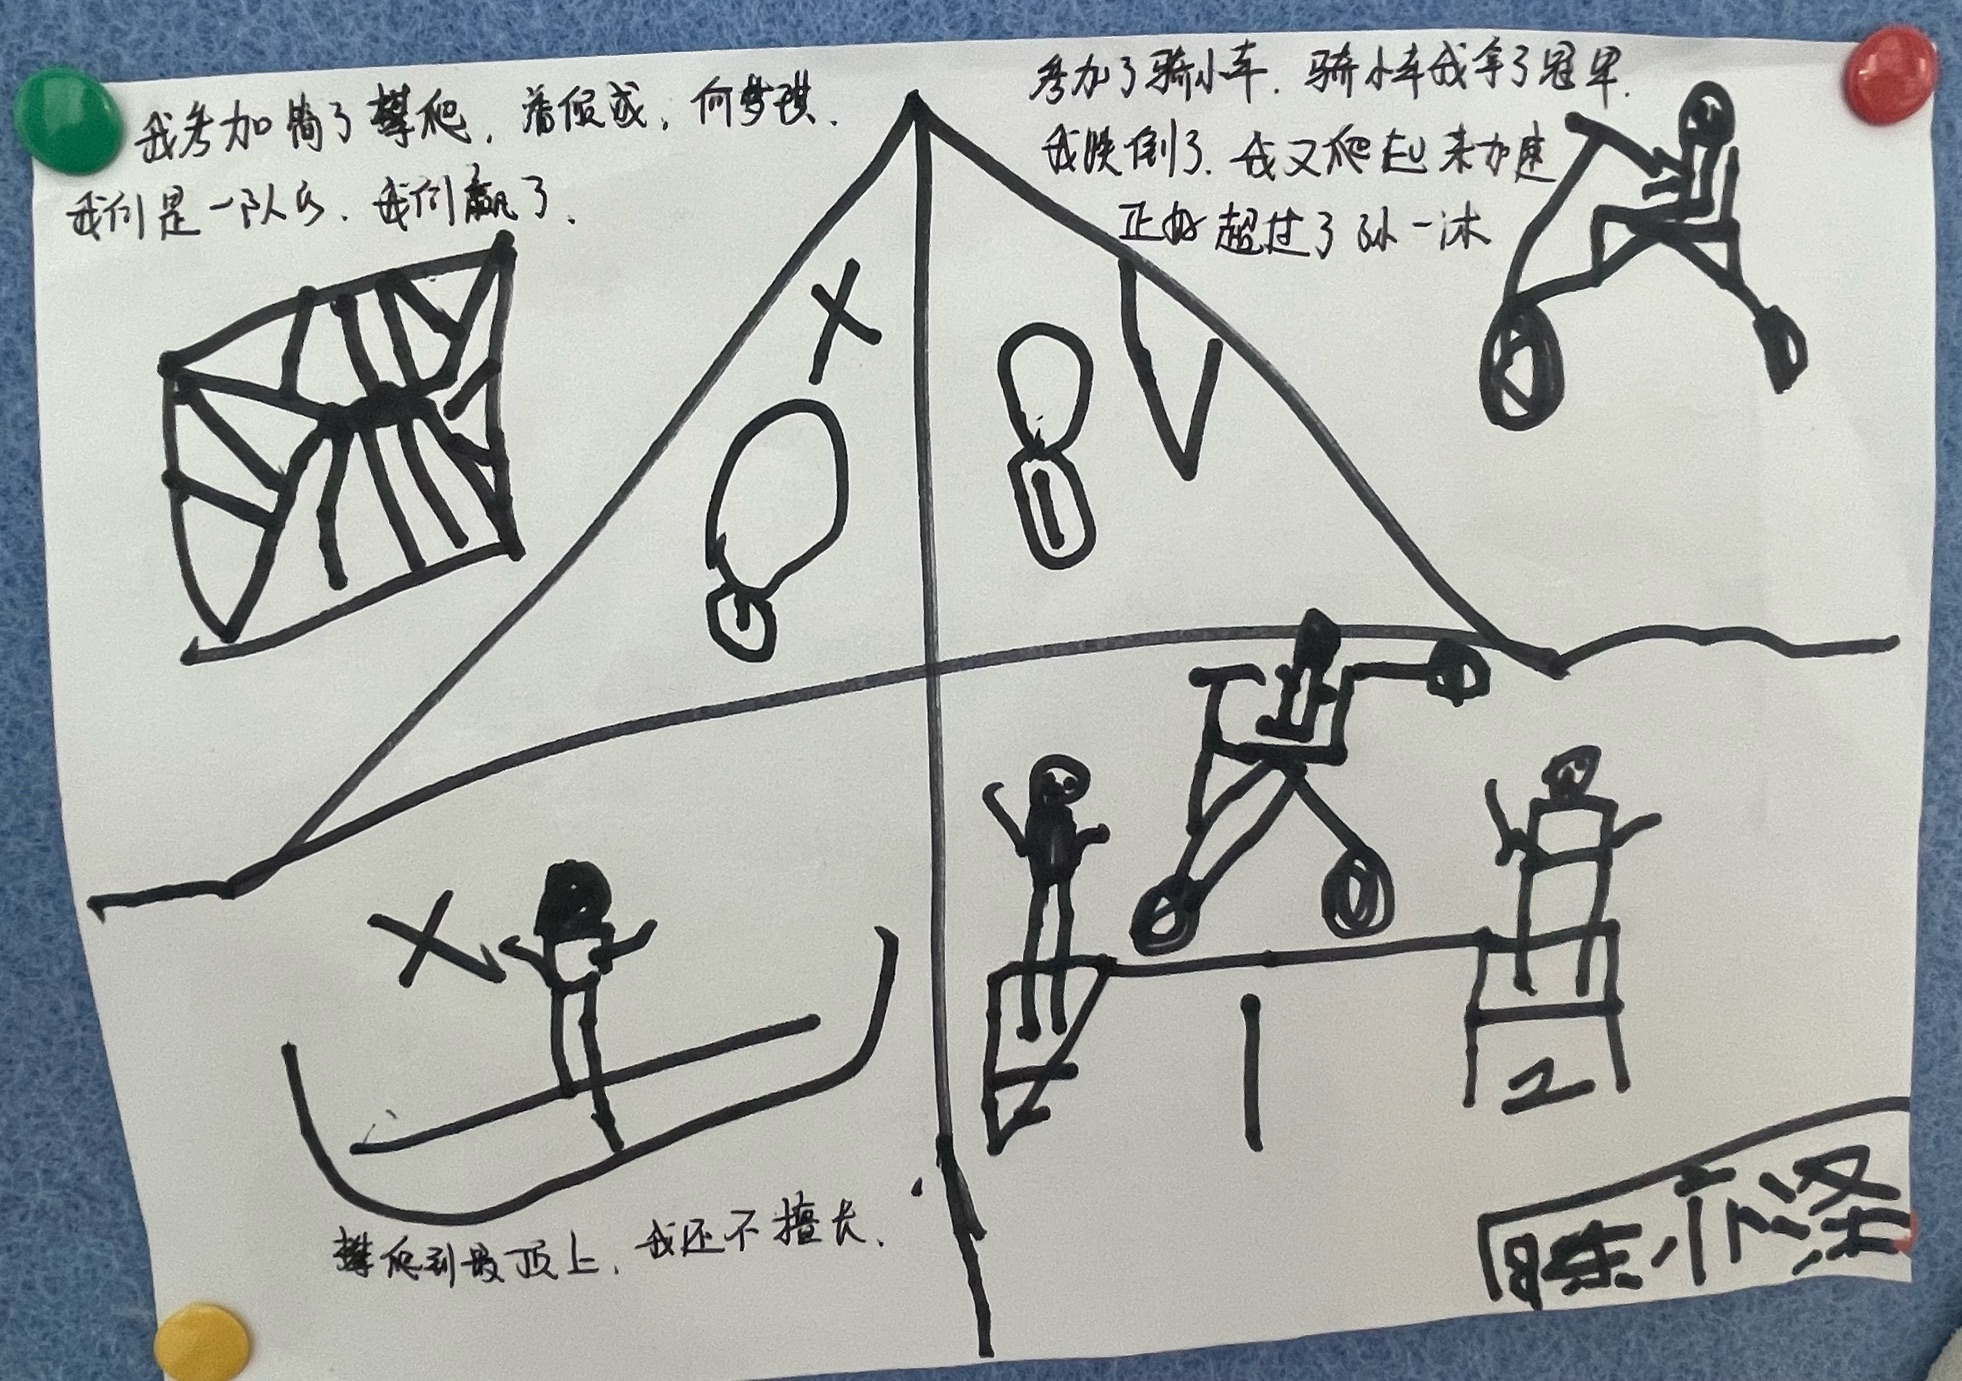 我参加了攀爬,
我们是一队的.我们赢了.
参加了骑小车.骑小车我拿了冠军.
我跌倒了.我又爬起来加速
正好超过了孙一沐
1
2
攀爬到最顶上.我还不擅长.
陈小泽